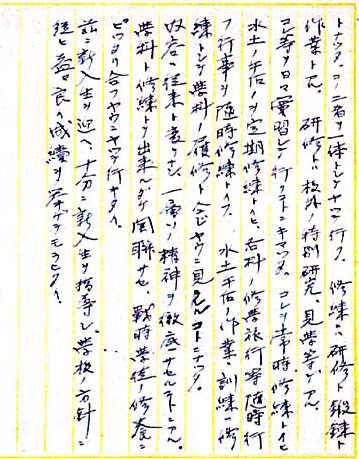 トナツタ。コノ二者ヲ一体トシテヤツテ行ク。修練ハ、研修ト鍛錬ト
作業トデアル。研修トハ校外ノ特別研究、見学等デアル。
コレ等ヲ日々実習シテ行クコトニキマツタ。コレヲ常時修練トイヒ
水土ノ午后ノヲ定期修練トイヒ、各科ノ修学旅行等随時行
フ行事ヲ随時修練トイフ。水土午后ノ作業、訓練ハ修
練トシテ学科ノ履修ト念ジヤウニ見ラルルコトニナツタ。
内容ハ従来ト変リナシ、一層ソノ精神ヲ徹底サセルコトニアル。
学科ト修練トヲ出来ルダケ関聯サセ、戦時学徒ノ修養ニ
ピツタリ合フヤウニヤツテ行キタイ。
茲ニ新入生ヲ迎ヘ、十分ニ新入生ヲ指導シ、学校ノ方針ニ
従ヒ益々良イ成績ヲ挙ゲテモラヒタイ。